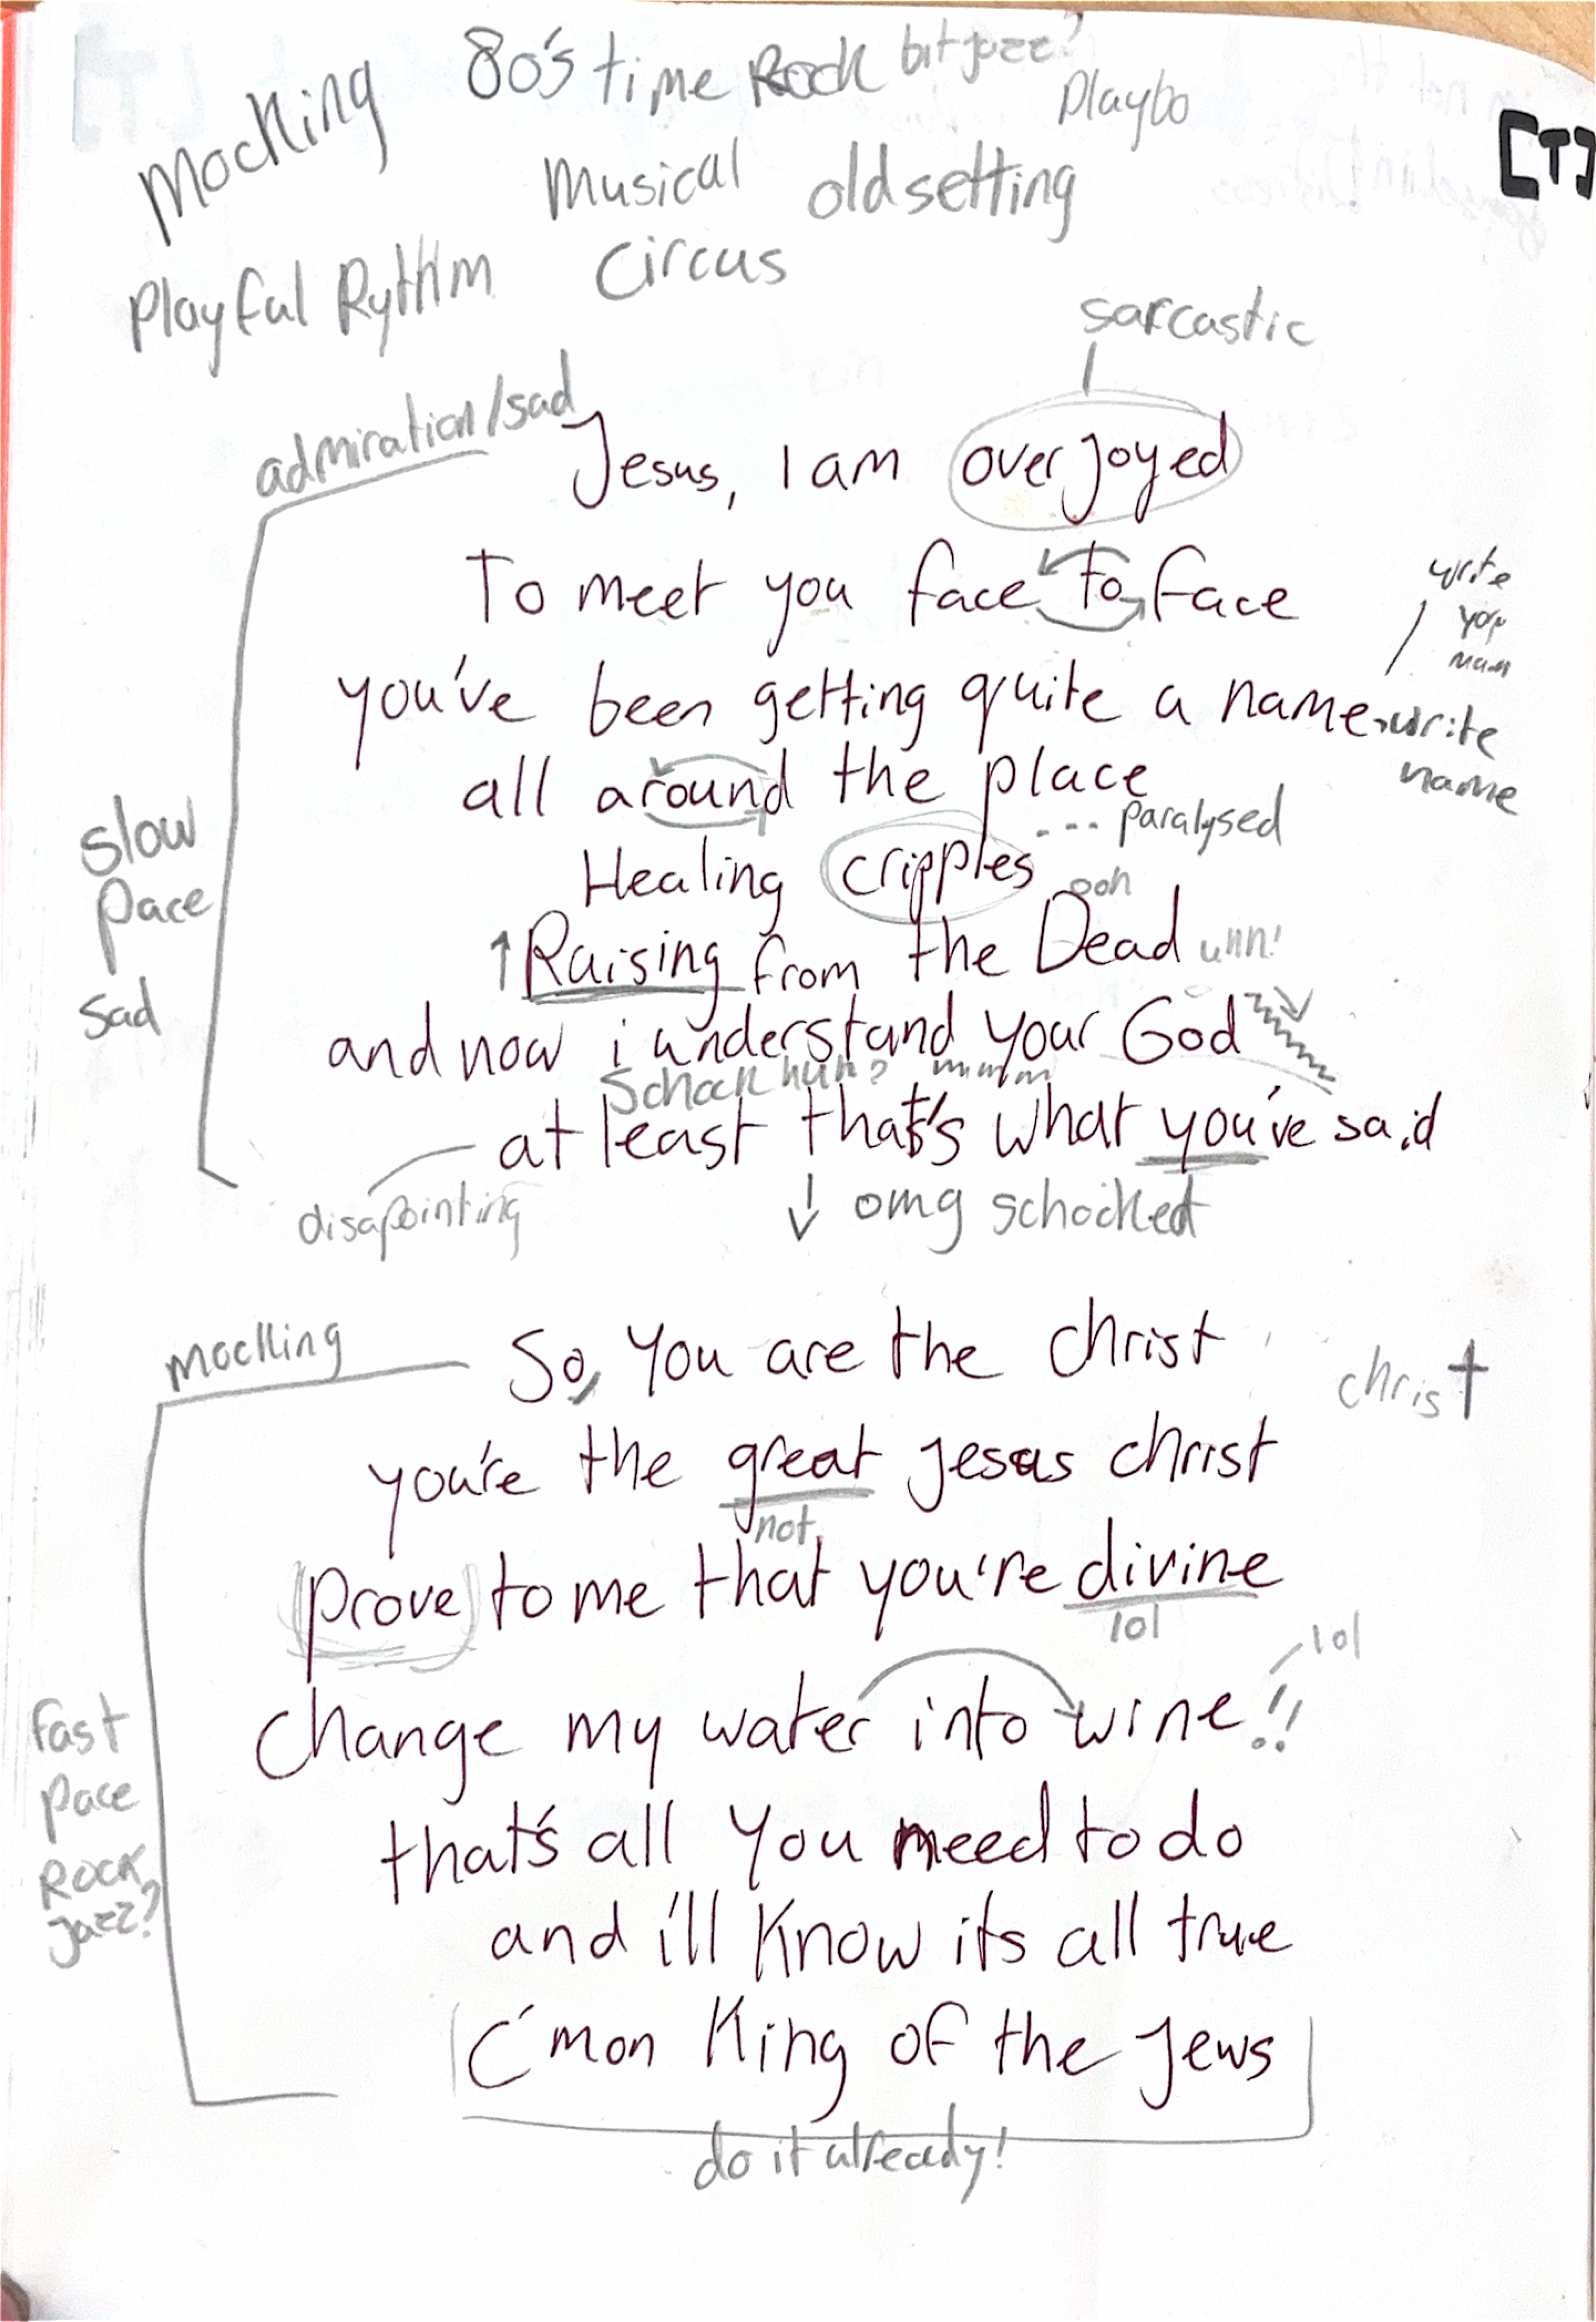 80's time Rock bit jazz?
Mocking
Playbo
[T]
Musical old setting
Playful Rythim Circus
sarcastic
admiration/sad
Jesus, I am overjoyed
To meet you face to face
write
you've been getting quite a name write
name
all around the place
slow
pace
sad
... paralysed
Healing cripples
ooh
↑ Raising from the Dead unn!
and now i understand your God
Schock huh? mmmm
at least that's what you've said
disapointing
↓ omg schocked
mocking
So, You are the christ
christ
you're the great jesus christ
not
prove to me that you're divine
lol
lol
Change my water into wine!!
fast
pace
ROCK
jazz?
that's all You need to do
and i'll Know its all true
C'mon King of the Jews
do it already!